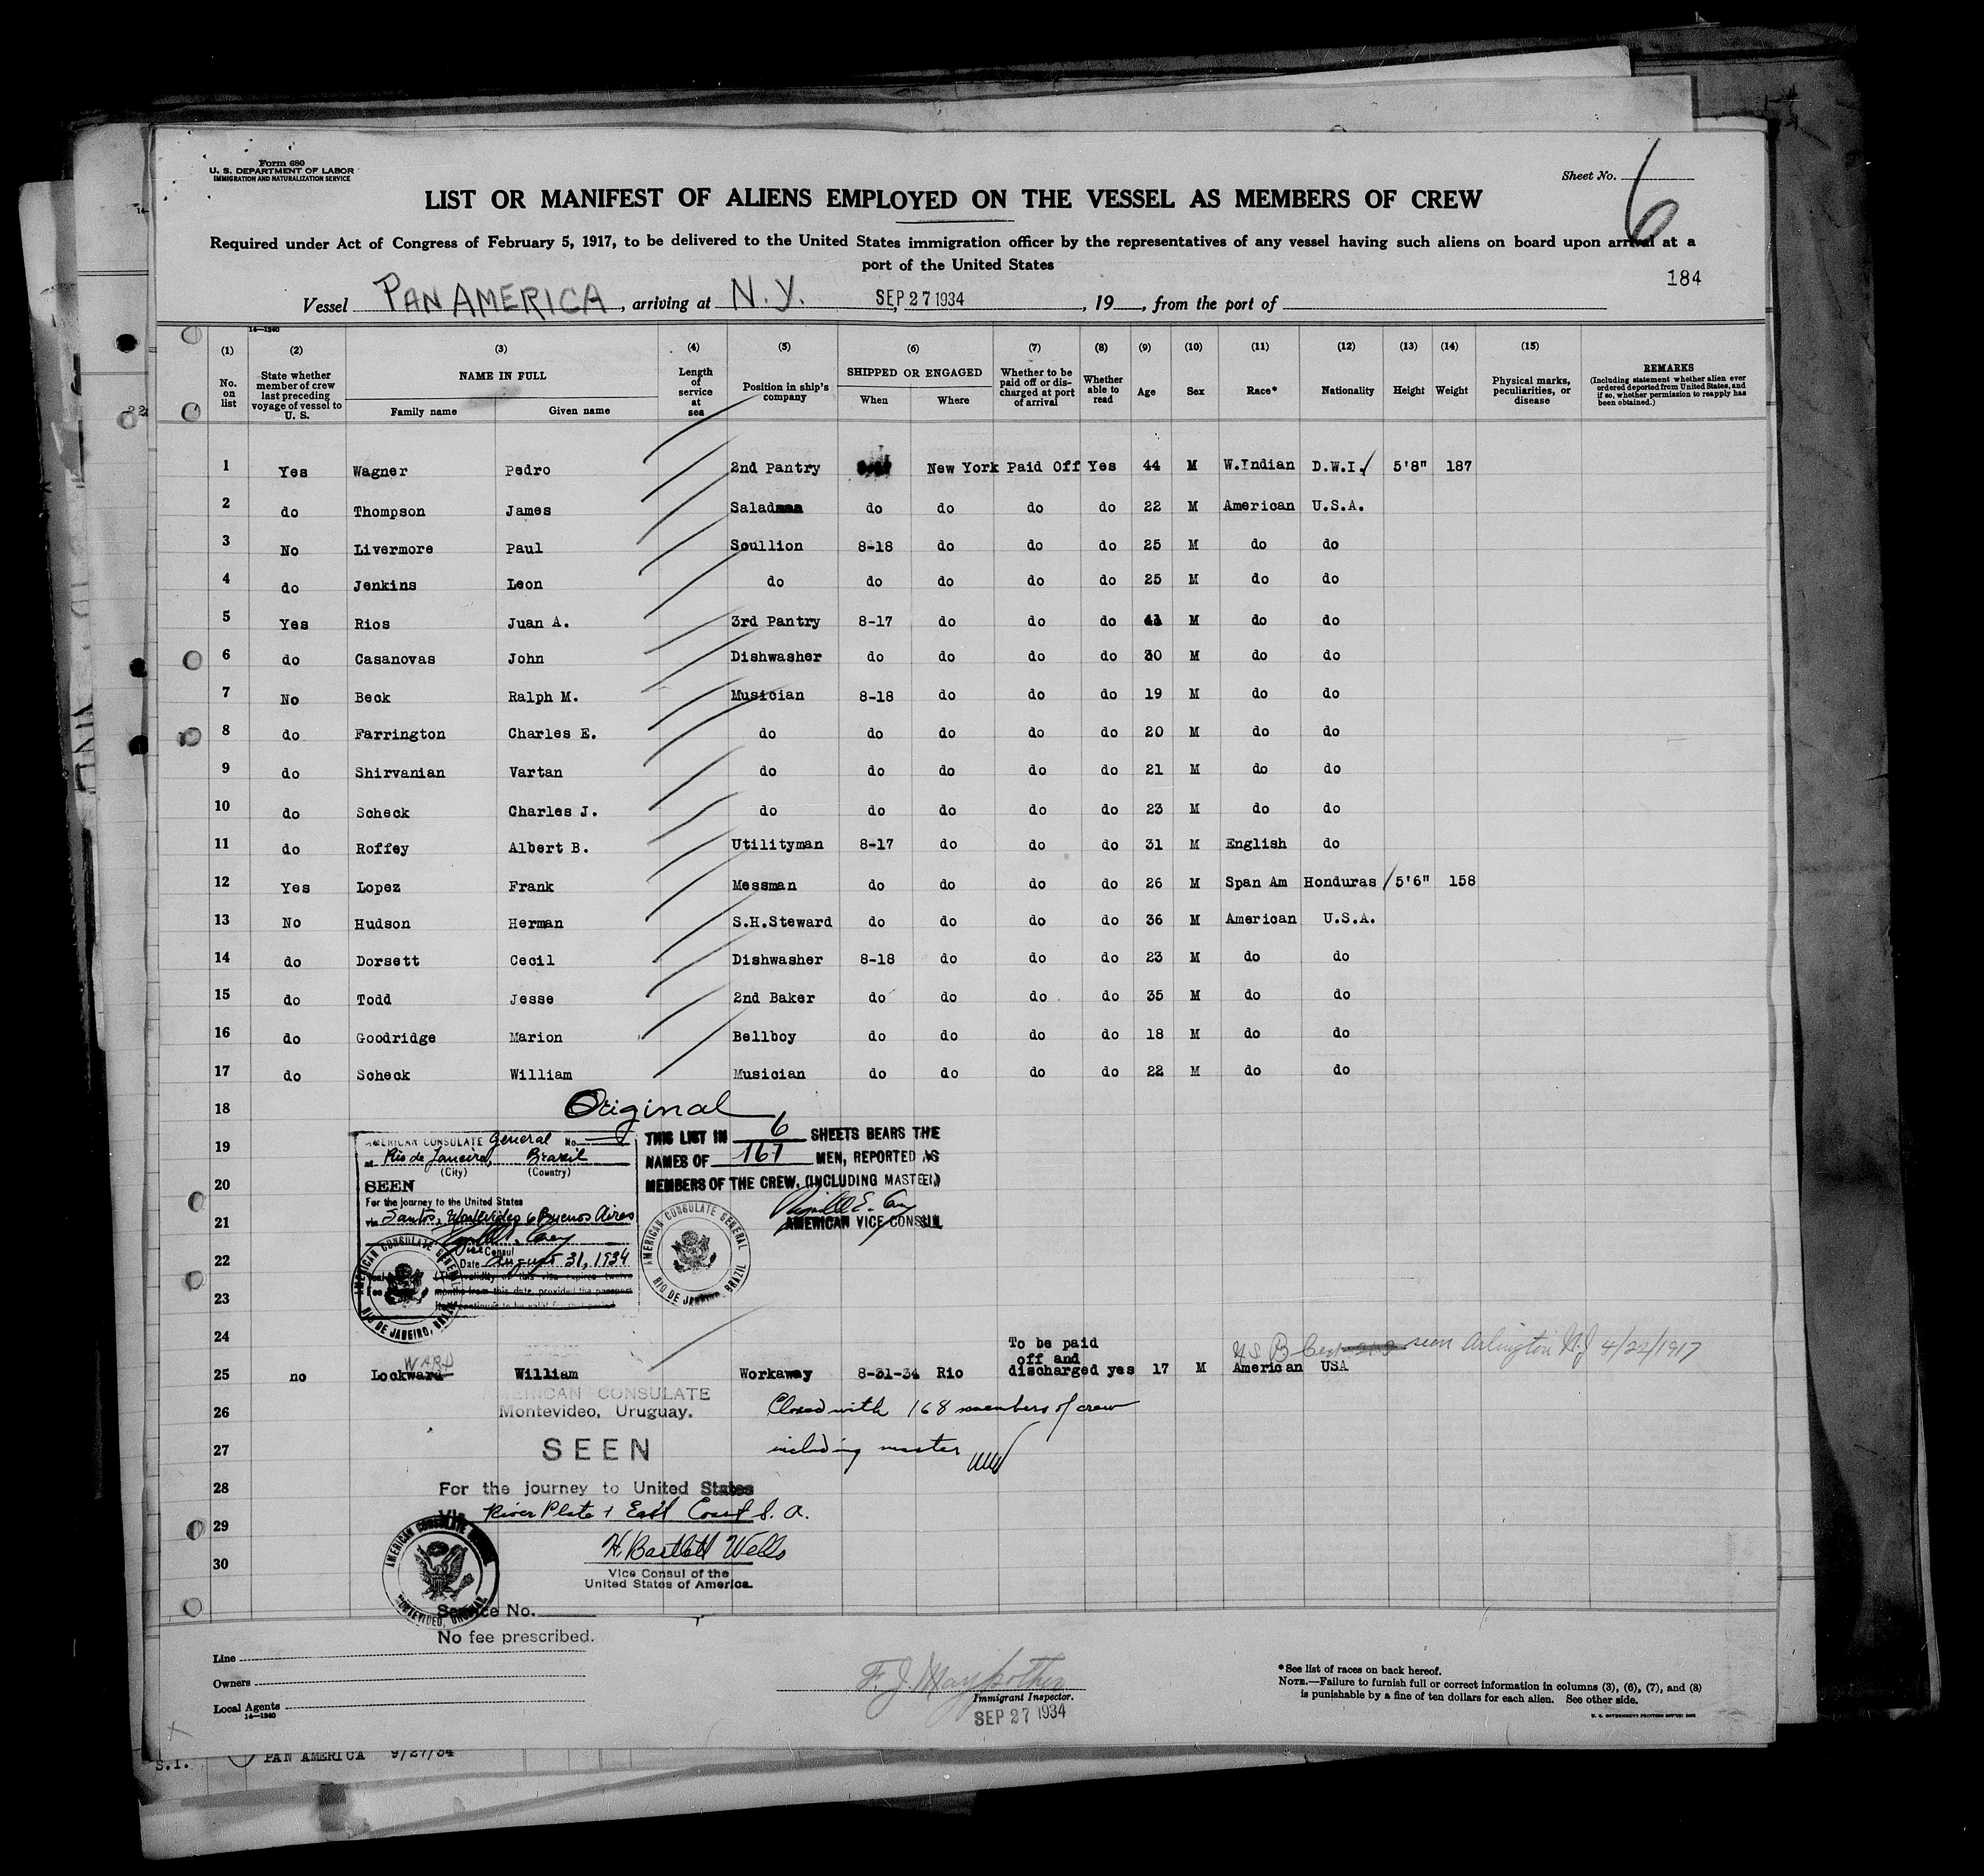 Form 680
U. S. DEPARTMENT OF LABOR
IMMIGRATION AND NATURALIZATION SERVICE
Sheet No. 6
LIST OR MANIFEST OF ALIENS EMPLOYED ON THE VESSEL AS MEMBERS OF CREW
Required under Act of Congress of February 5, 1917, to be delivered to the United States immigration officer by the representatives of any vessel having such aliens on board upon arrival at a
port of the United States
184
Vessel PAN AMERICA, arriving at N.Y. SEP 27 1934, 19, from the port of
14—1240
(1) (2) (3) (4) (5) (6) (7) (8) (9) (10) (11) (12) (13) (14) (15)
No. on list State whether member of crew last preceding voyage of vessel to U. S. NAME IN FULL Family name Given name Length of service at sea Position in ship's company SHIPPED OR ENGAGED When Where Whether to be paid off or discharged at port of arrival Whether able to read Age Sex Race* Nationality Height Weight Physical marks, peculiarities, or disease REMARKS (Including statement whether alien ever ordered deported from United States, and if so, whether permission to reapply has been obtained.)
1 Yes Wagner Pedro 2nd Pantry New York Paid Off Yes 44 M W.Indian D.W.I. 5'8" 187
2 do Thompson James Saladman do do do do 22 M American U.S.A.
3 No Livermore Paul Scullion 8-18 do do do 25 M do do
4 do Jenkins Leon do do do do do 25 M do do
5 Yes Rios Juan A. 3rd Pantry 8-17 do do do 41 M do do
6 do Casanovas John Dishwasher do do do do 30 M do do
7 No Beck Ralph M. Musician 8-18 do do do 19 M do do
8 do Farrington Charles E. do do do do do 20 M do do
9 do Shirvanian Vartan do do do do do 21 M do do
10 do Scheck Charles J. do do do do do 23 M do do
11 do Roffey Albert B. Utilityman 8-17 do do do 31 M English do
12 Yes Lopez Frank Messman do do do do 26 M Span Am Honduras 5'6" 158
13 No Hudson Herman S.H.Steward do do do do 36 M American U.S.A.
14 do Dorsett Cecil Dishwasher 8-18 do do do 23 M do do
15 do Todd Jesse 2nd Baker do do do do 35 M do do
16 do Goodridge Marion Bellboy do do do do 18 M do do
17 do Scheck William Musician do do do do 22 M do do
18 Original
19
20
21
22
23
24
AMERICAN CONSULATE General No.
at Rio de Janeiro, Brazil
(City) (Country)
SEEN
For the journey to the United States
via Santos, Montevideo & Buenos Aires
Vice Consul
Date August 31, 1934
(The validity of this visa expires twelve
months from this date, provided the passport
continues to be valid for that period
AMERICAN CONSULATE GENERAL RIO DE JANEIRO, BRAZIL
THIS LIST IN 6 SHEETS BEARS THE
NAMES OF 167 MEN, REPORTED AS
MEMBERS OF THE CREW. (INCLUDING MASTER)
AMERICAN VICE CONSUL
AMERICAN CONSULATE GENERAL RIO DE JANEIRO, BRAZIL
WARD
25 no Lockward William Workaway 8-31-34 Rio To be paid off and discharged yes 17 M American USA
seen Arlington N.J 4/22/1917
26
27
28
29
30
AMERICAN CONSULATE
Montevideo, Uruguay.
SEEN
For the journey to United States
Via River Plate & East Coast S. A.
H. Bartlett Wells
Vice Consul of the
United States of America.
AMERICAN CONSULATE MONTEVIDEO, URUGUAY
Service No.
No fee prescribed.
Closed with 168 members of crew
including master
Line
Owners
Local Agents
14—1240
Immigrant Inspector.
SEP 27 1934
*See list of races on back hereof.
NOTE.—Failure to furnish full or correct information in columns (3), (6), (7), and (8)
is punishable by a fine of ten dollars for each alien. See other side.
S.I. PAN AMERICA 9/27/34